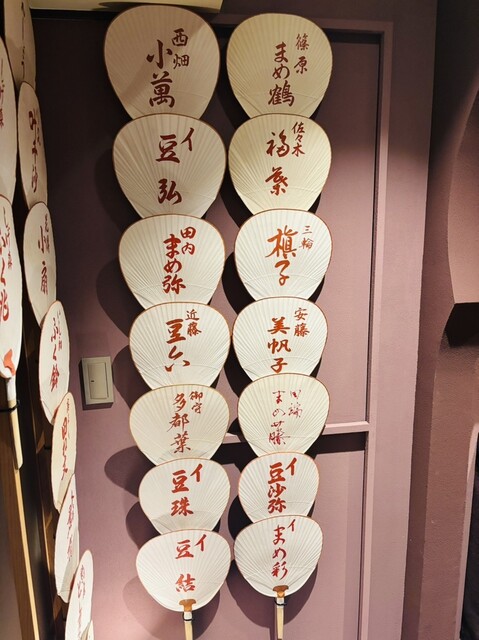 篠原
まめ鶴
佐々木
福葉
三輪
槇子
安藤
美帆子
田端
まめ藤
イ
豆沙弥
イ
まめ彩
西畑
小萬
イ
豆弘
田内
まめ弥
近藤
豆六
御守
多都葉
イ
豆珠
イ
豆結
小扇
ふく鈴